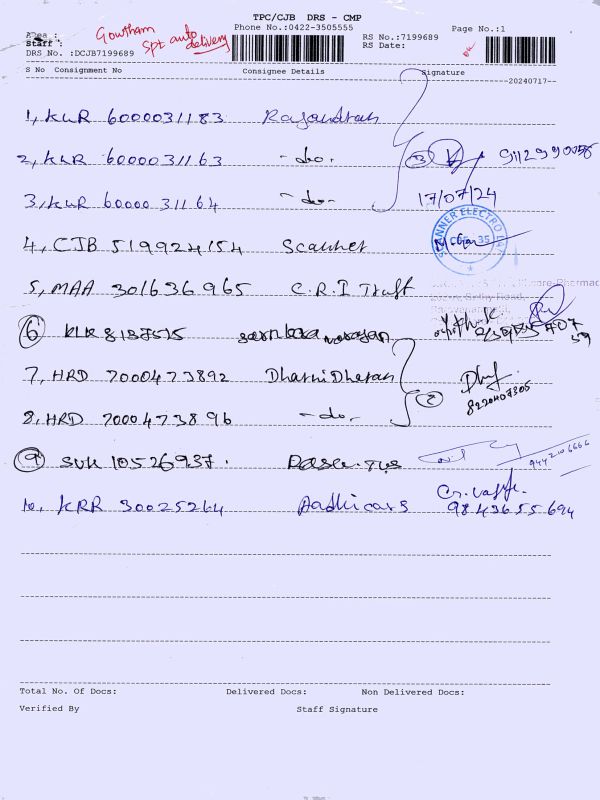 TPC/CJB DRS - CMP
Phone No.:0422-3505555
Page No.:1
Area :
Gowtham
Spt auto delivery
RS No.:7199689
Staff :
RS Date:
DRS No. :DCJB7199689
S No Consignment No Consignee Details Signature
20240717
1, KLR 6000031183 Rajandran
2, KLR 600031163 - do. (3) 9112990058
3, KLR 60000 31164 - do. 17/07/24
4, CJB 519924154 Scanner
5, MAA 301636965 C.R.I Trust
6
7, HRD 7000473892 DharniDharan
(2)
8220407305
8, HRD 7000473896 - do.
9 SVK 10526937.
944 210 6666
10, KRR 30025264 Aadhi cars
98436 55 694
Total No. Of Docs: Delivered Docs: Non Delivered Docs:
Verified By Staff Signature